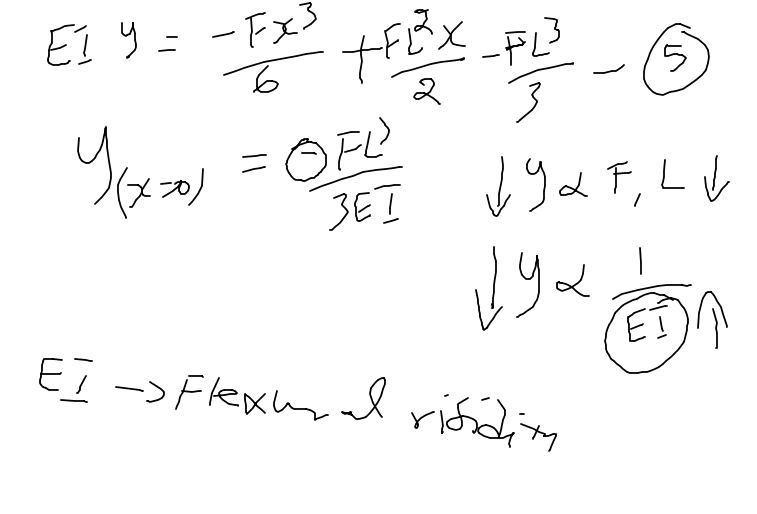 EI y = -Fx³/6 + FL²x/2 - FL³/3 - ⑤
y(x=0) = ⊖FL³/3EI
↓ y ∝ F, L ↓
↓ y ∝ 1/EI ↑
EI → Flexural rigidity